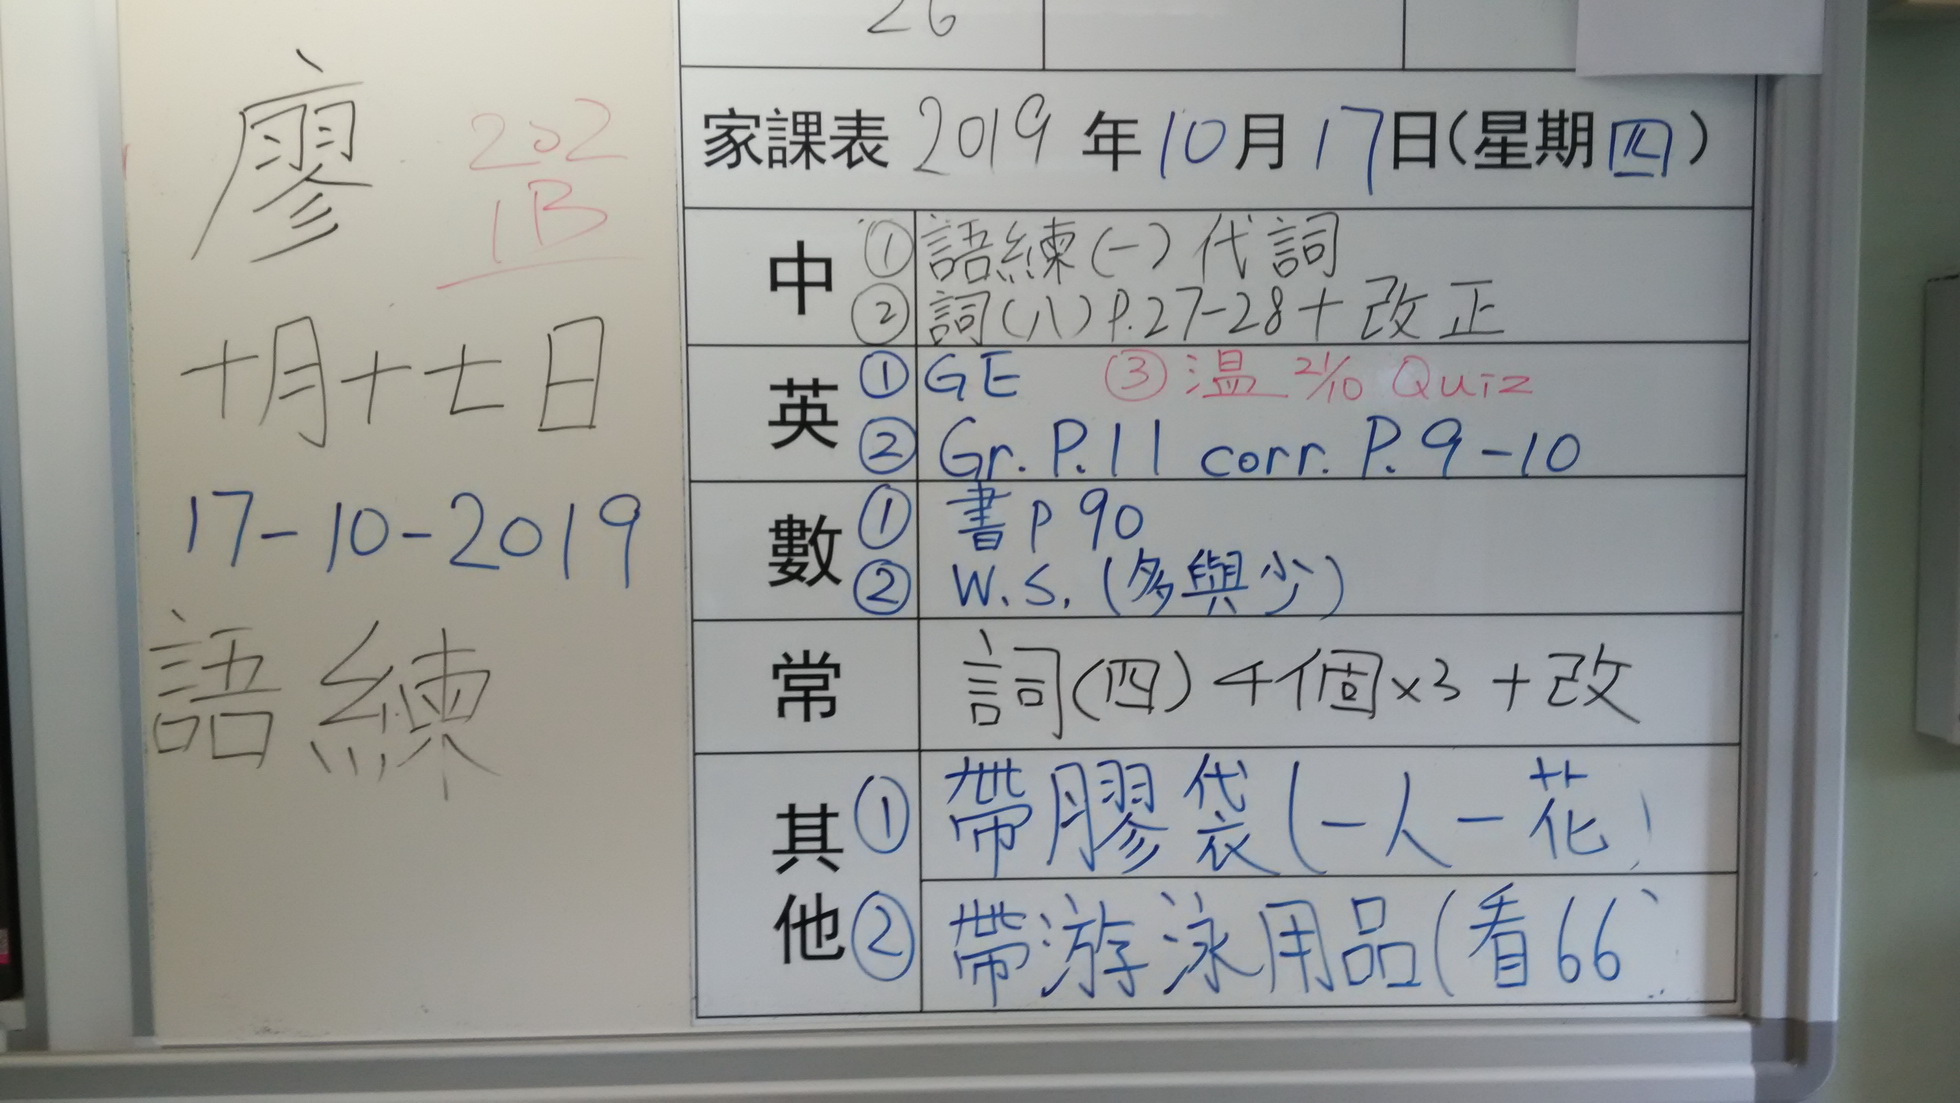 廖
202
1B
十月十七日
17-10-2019
語練
26
家課表 2019 年 10 月 17 日(星期 四)
中 ① 語練(一) 代詞
② 詞(八) P.27-28 + 改正
英 ① GE ③ 溫 21/10 Quiz
② Gr. P.11 corr. P.9-10
數 ① 書 P 90
② W.S. (多與少)
常 詞(四) 4個×3 + 改
其他 ① 帶膠袋(一人一花)
② 帶游泳用品(看66)